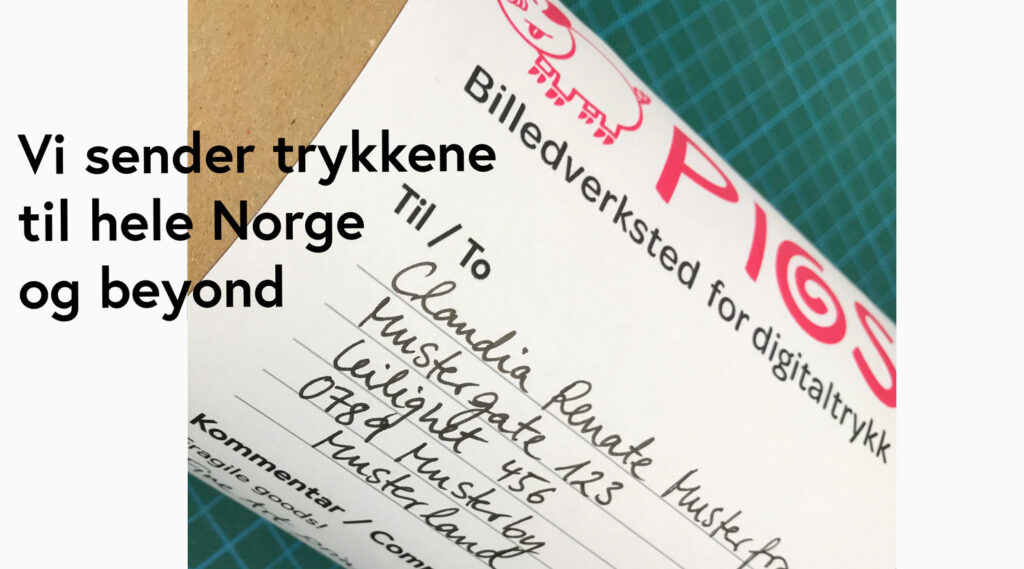 Vi sender trykkene
til hele Norge
og beyond
PIGS
Billedverksted for digitaltrykk
Til / To
Claudia Renate Musterfr
Mustergate 123
Leilighet 456
0789 Musterby
Musterland
Kommentar / Comm
Fragile goods!
Fine Art